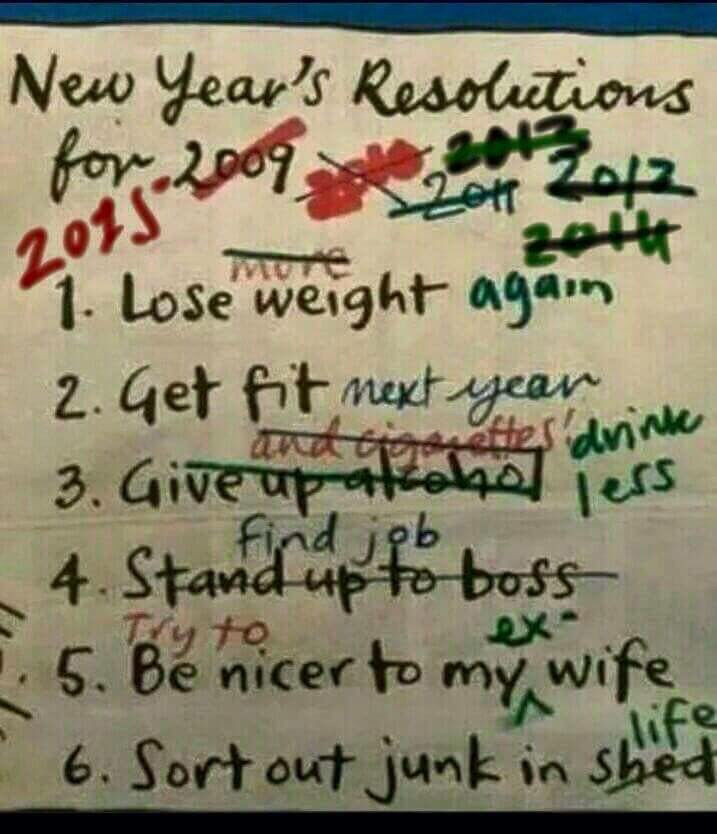 New Year's Resolutions
2013
for 2009 2011 2012
2015 2014
more
1. Lose weight again
2. Get fit next year
and cigarettes drink
3. Give up alcohol less
find job
4. Stand up to boss
Try to ex-
5. Be nicer to my wife
life
6. Sort out junk in shed